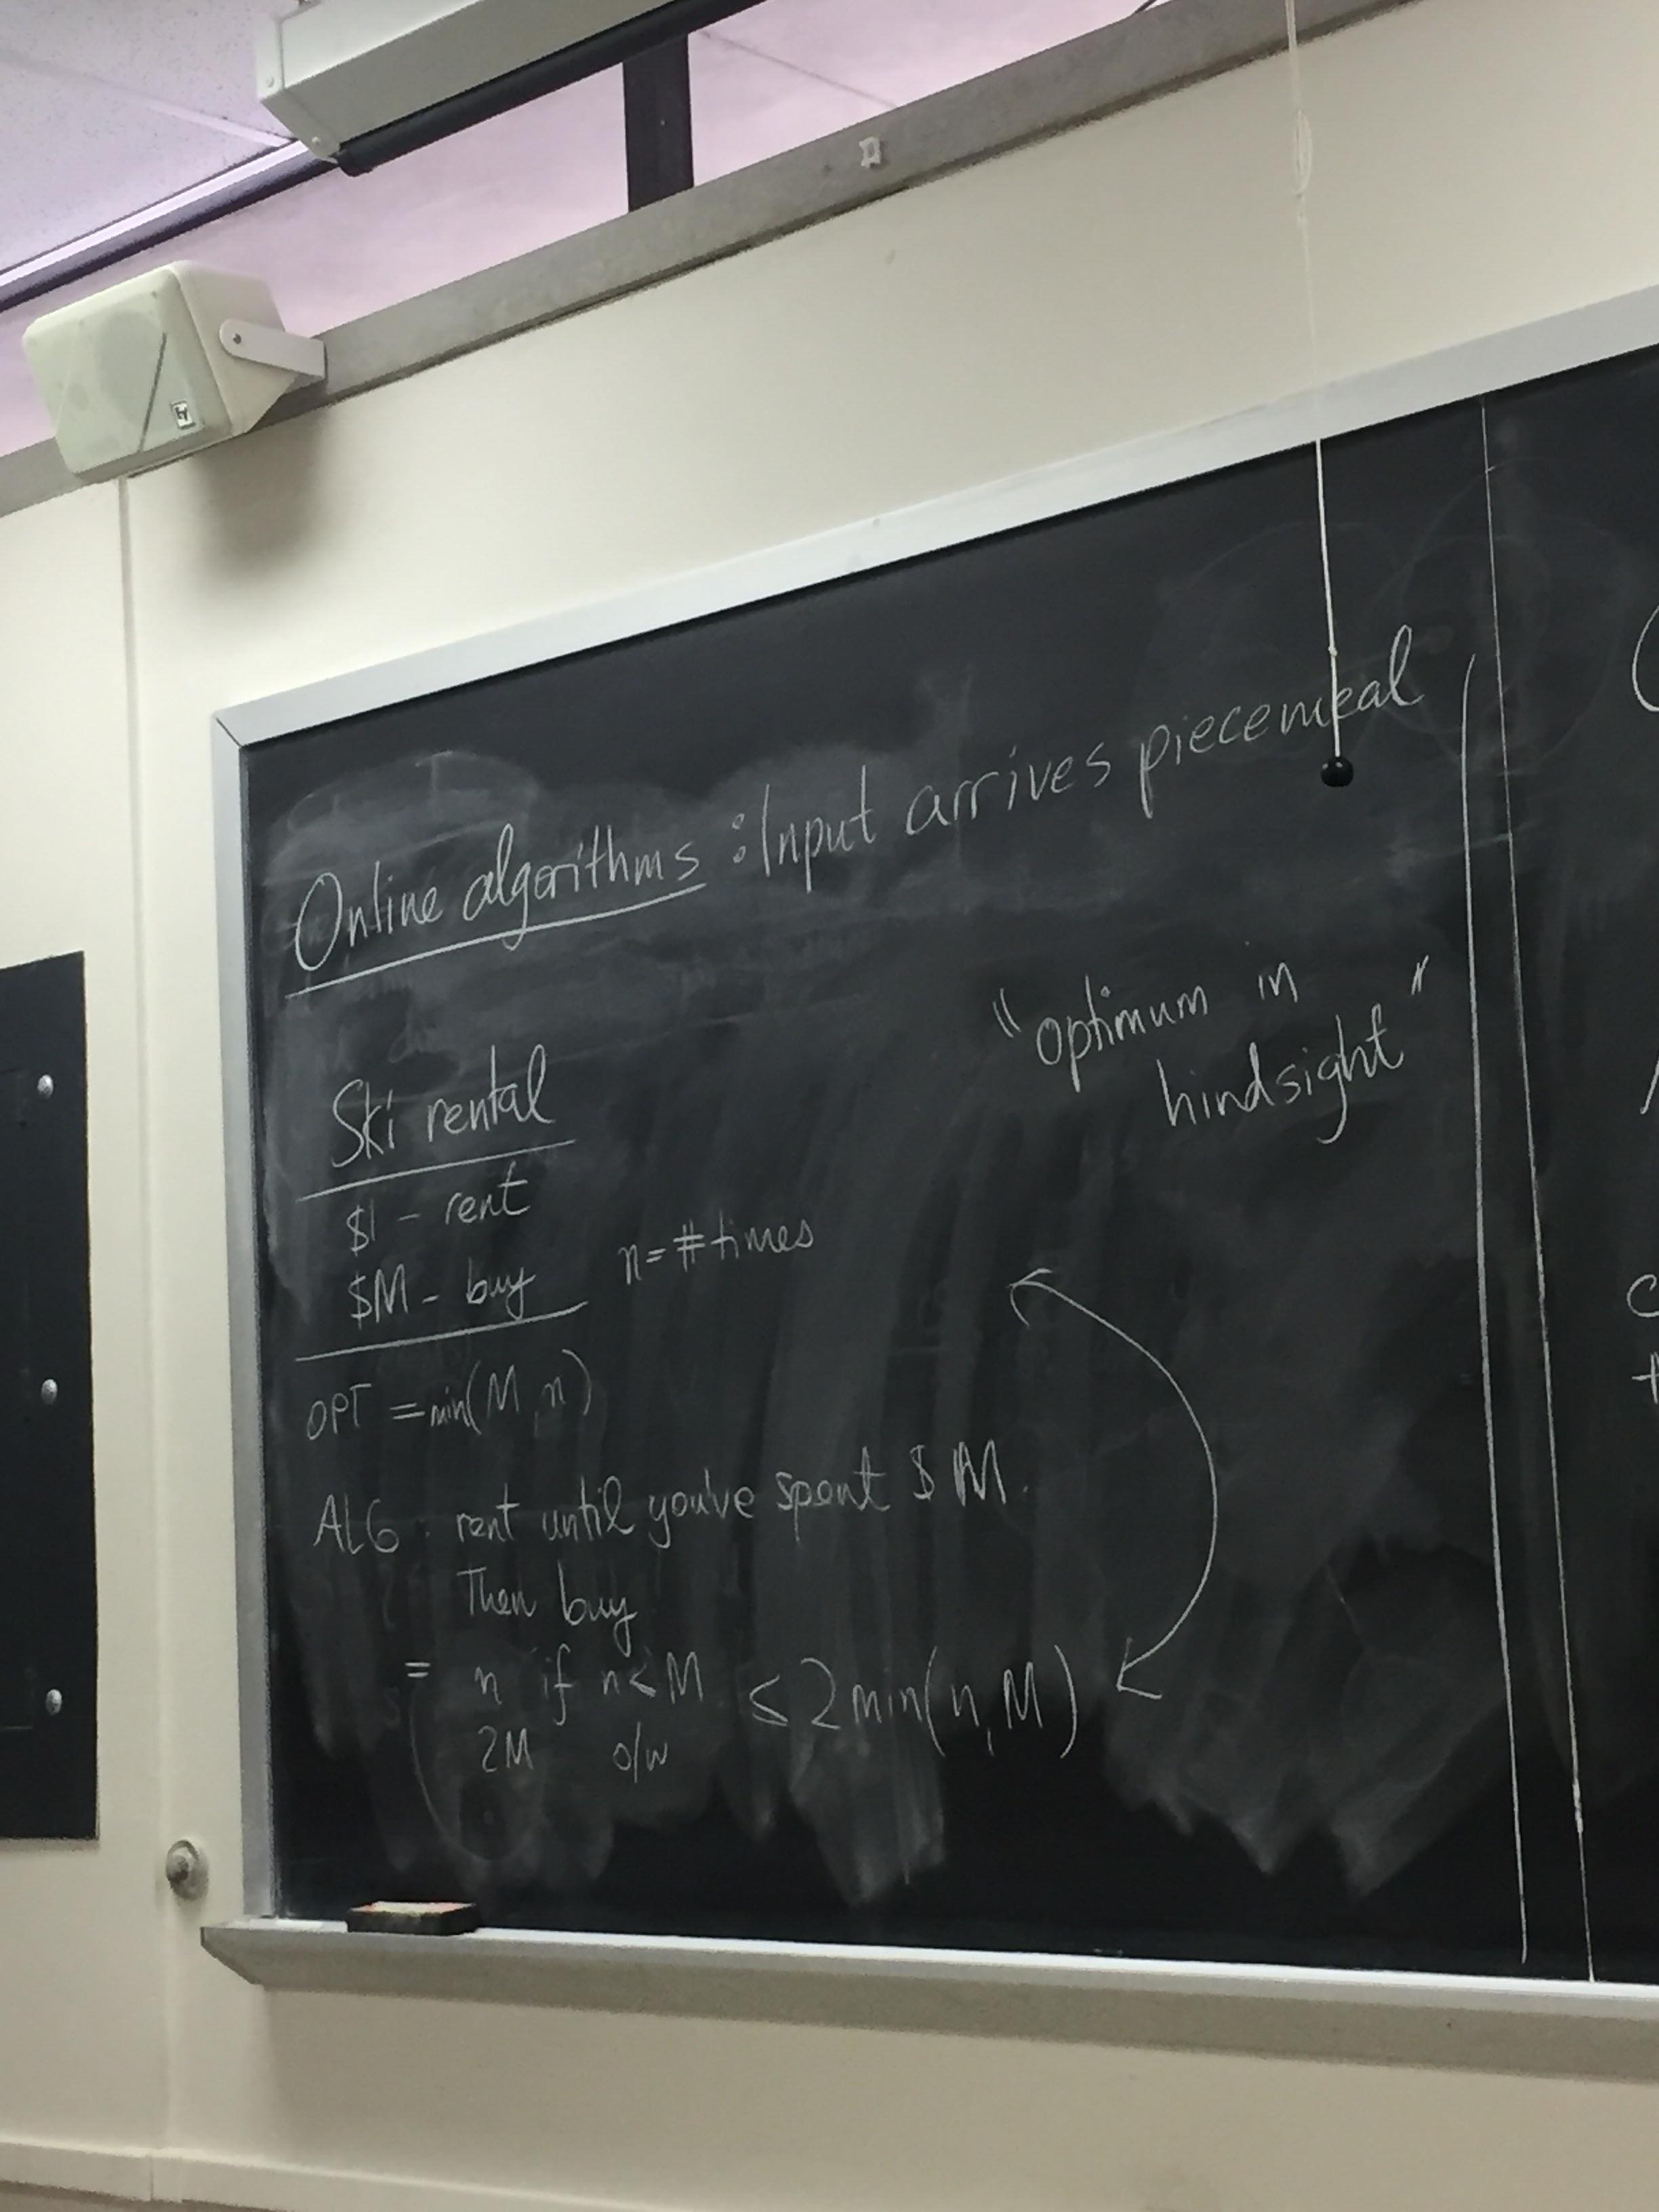 Online algorithms : Input arrives piecemeal
"optimum in
hindsight"
Ski rental
$1 - rent
$M - buy
n = # times
OPT = min(M, n)
ALG : rent until you've spent $ M.
Then buy
= n if n < M ≤ 2 min(n, M)
2M o/w
EV